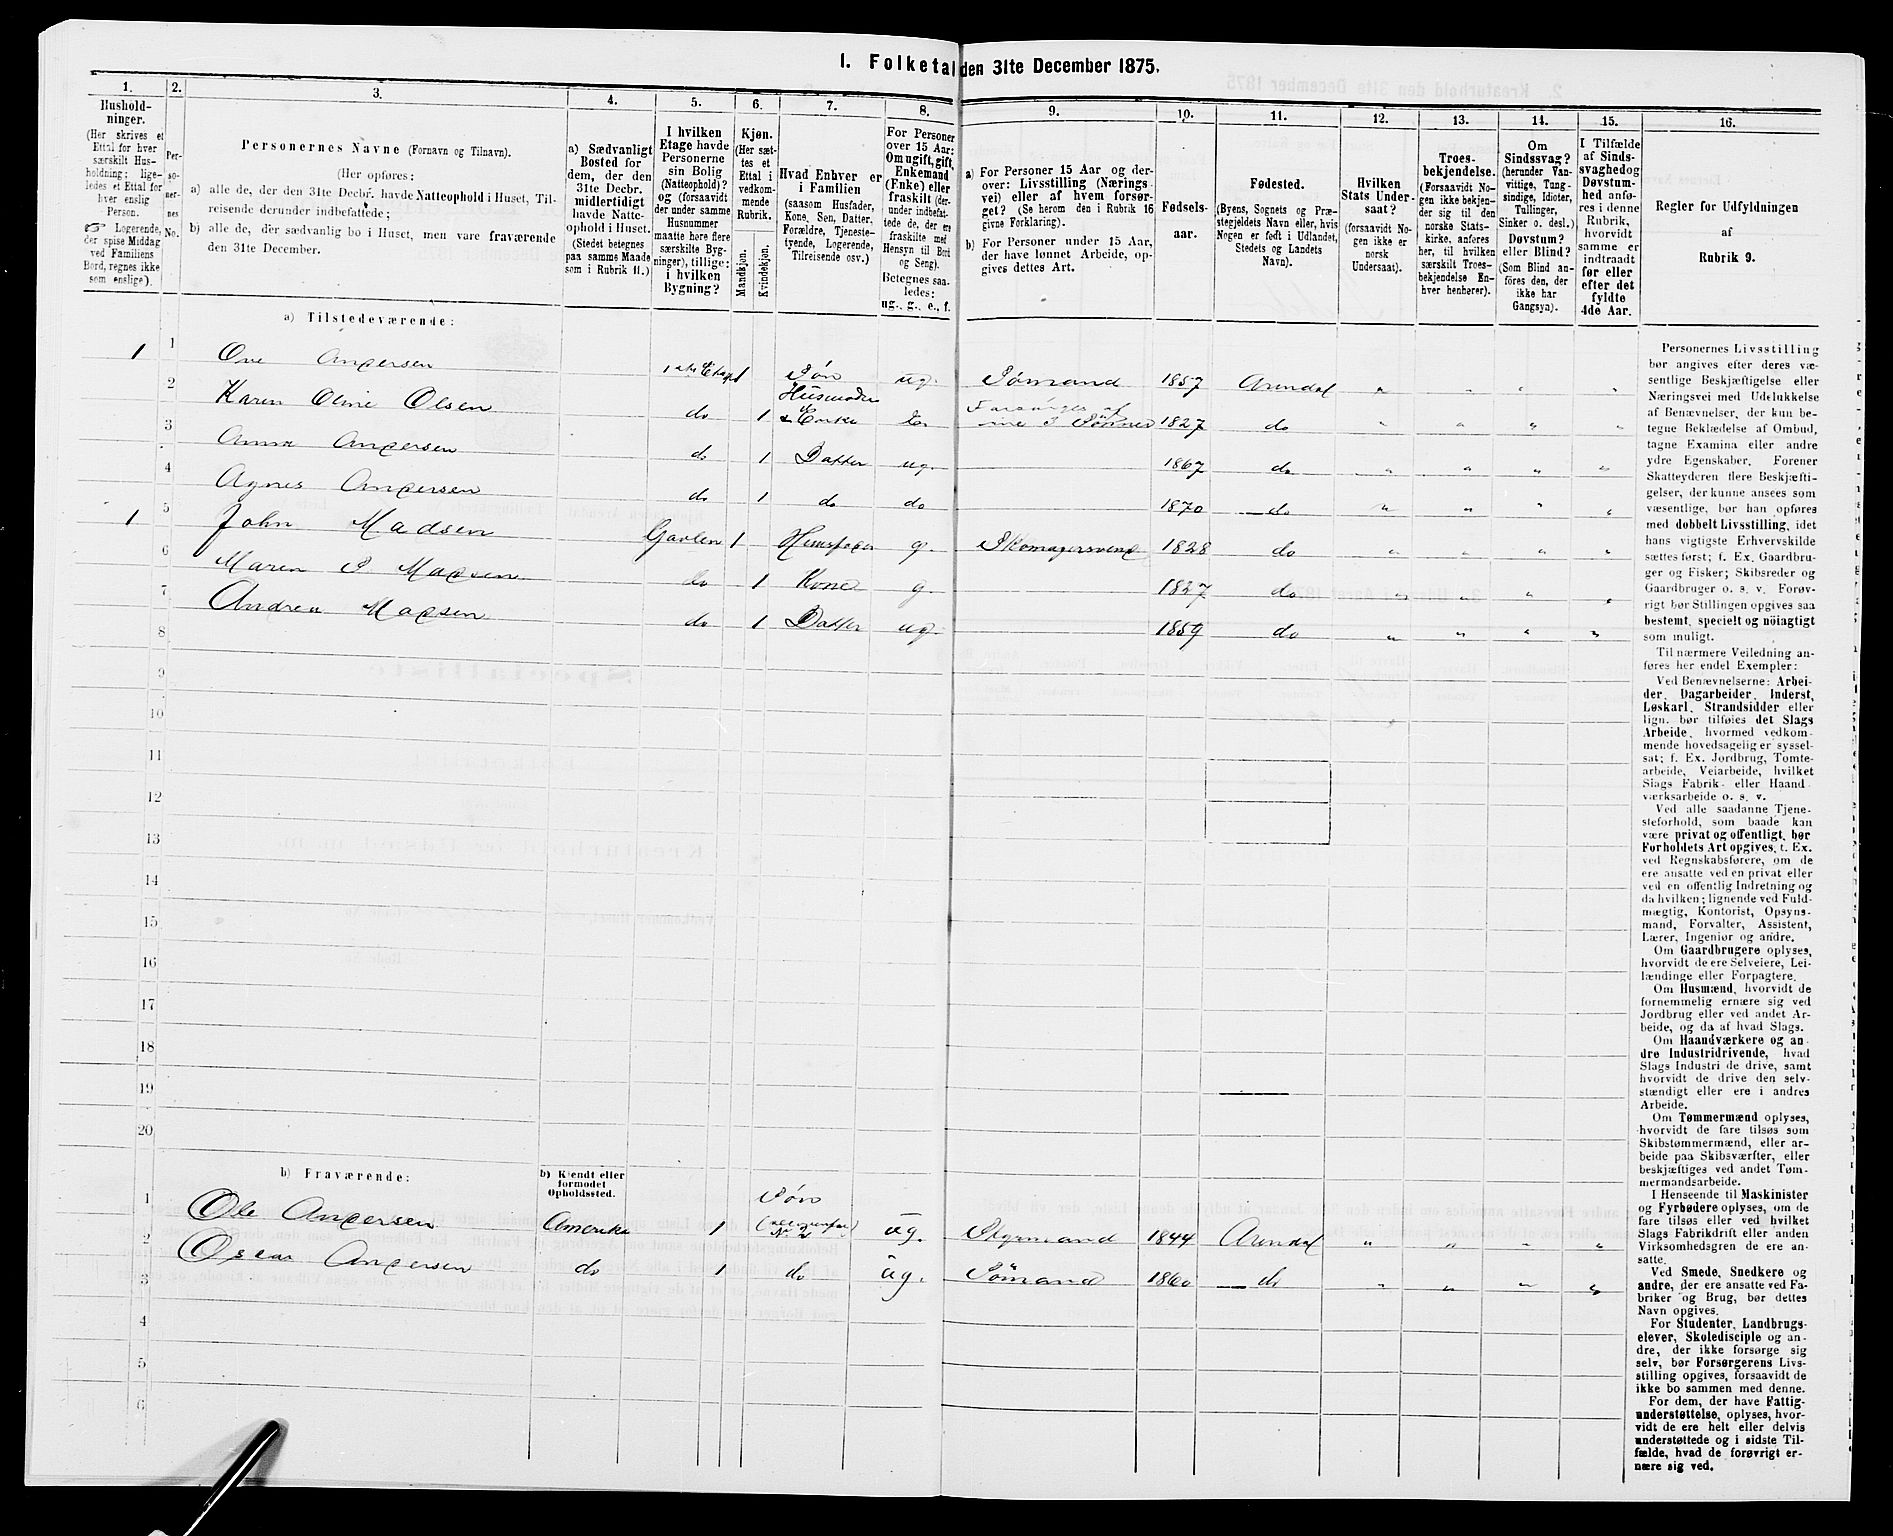 1. Folketal den 31te December 1875.
1. 2. 3. 4. 5. 6. 7. 8. 9. 10. 11. 12. 13. 14. 15. 16.
Hushold-
ninger.
(Her skrives et
Ettal for hver
særskilt Hus-
holdning; lige-
ledes et Ettal for
hver enslig
Person.
☞ Logerende,
der spise Middag
ved Familiens
Bord, regnes ikke
som enslige).
Per-
so-
ner-
nes
No.
Personernes Navne (Fornavn og Tilnavn).
(Her opføres:
a) alle de, der den 31te Decbr. havde Natteophold i Huset, Til-
reisende derunder indbefattede;
b) alle de, der sædvanlig bo i Huset, men vare fraværende
den 31te December.
a) Sædvanligt
Bosted for
dem, der den
31te Decbr.
midlertidigt
havde Natte-
ophold i Huset.
(Stedet betegnes
paa samme Maade
som i Rubrik 11.)
I hvilken
Etage havde
Personerne
sin Bolig
(Natteophold)?
og (forsaavidt
der under samme
Husnummer
maatte høre flere
særskilte Byg-
ninger), tillige:
i hvilken
Bygning?
Kjøn.
(Her sæt-
tes et
Ettal i
vedkom-
mende
Rubrik.
Mandkjøn.
Kvindekjøn.
Hvad Enhver er
i Familien
(saasom Husfader,
Kone, Søn, Datter,
Forældre, Tjeneste-
tyende, Logerende,
Tilreisende osv.)
For Personer
over 15 Aar:
Om ugift, gift,
Enkemand
(Enke) eller
fraskilt (der-
under indbefat-
tede de, der ere
fraskilte med
Hensyn til Bord
og Seng).
Betegnes saa-
ledes:
ug., g., e., f.
a) For Personer 15 Aar og der-
over: Livsstilling (Nærings
vei) eller af hvem forsør-
get? (Se herom den i Rubrik 16
givne Forklaring).
b) For Personer under 15 Aar,
der have lønnet Arbeide, op-
gives dettes Art.
Fødsels-
aar.
Fødested.
(Byens, Sognets og Præ-
stegjeldets Navn eller, hvis
Nogen er født i Udlandet,
Stedets og Landets
Navn).
Hvilken
Stats Under-
saat?
(forsaavidt No-
gen ikke er
norsk
Undersaat).
Troes-
bekjendelse.
(Forsaavidt No-
gen ikke bekjen-
der sig til den
norske Stats-
kirke, anføres
her, til hvilken
særskilt Troes-
bekjendelse En-
hver henhører).
Om
Sindssvag?
(herunder Van-
vittige, Tung-
sindige, Idioter,
Tullinger,
Sinker o. desl.)
Døvstum?
eller Blind?
(Som Blind an-
føres den, der
ikke har
Gangsyn).
I Tilfælde
af Sinds-
svaghed og
Døvstum-
hed anfø-
res i denne
Rubrik,
hvorvidt
samme er
indtraadt
før eller
efter det
fyldte
4de Aar.
Regler for Udfyldningen
af
Rubrik 9.
a) Tilstedeværende:
1 1 Ove Andersen 1ste Etage 1 Søn ug. Sømand 1857 Arendal " " " "
2 Karen Oline Olsen do 1 Husmoder & Enke 3 Sønner 1827 do " " " "
3 Anna Andersen do 1 Datter ug. 1867 do " " " "
4 Agnes Andersen do 1 do do 1870 do " " " "
1 5 John Madsen Gavlen 1 Huusfader g. Skomagersvend 1828 do " " " "
6 Maren Madsen do 1 Kone g. 1827 do " " " "
7 Andrea Madsen do 1 Datter ug. 1859 do " " " "
8
9
10
11
12
13
14
15
16
17
18
19
20
b) Fraværende:
b) Kjendt eller
formodet
Opholdssted.
1 Ole Andersen Amerika 1 Søn No. 2 ug. Styrmand 1844 Arendal " " " "
2 Oscar Andersen do 1 do ug. Sømand 1860 do " " " "
3
4
5
6
Personernes Livsstilling
bør angives efter deres væ-
sentlige Beskjæftigelse eller
Næringsvei med Udelukkelse
af Benævnelser, der kun be-
tegne Beklædelse af Ombud,
tagne Examina eller andre
ydre Egenskaber. Forener
Skatteyderen flere Beskjæfti-
gelser, der kunne ansees som
væsentlige, bør han opføres
med dobbelt Livsstilling, idet
hans vigtigste Erhvervskilde
sættes først; f. Ex. Gaardbru-
ger og Fisker; Skibsreder og
Gaardbruger o. s. v. Forøv-
rigt bør Stillingen opgives saa
bestemt, specielt og nøiagtigt
som muligt.
Til nærmere Veiledning an-
føres her endel Exempler:
Ved Benævnelserne: Arbei-
der, Dagarbeider, Inderst,
Løskarl, Strandsidder eller
lign. bør tilføies det Slags
Arbeide, hvormed vedkom-
mende hovedsagelig er syssel-
sat; f. Ex. Jordbrug, Tomte-
arbeide, Veiarbeide, hvilket
Slags Fabrik- eller Haand
værksarbeide o. s. v.
Ved alle saadanne Tjene-
steforhold, som baade kan
være privat og offentligt, bør
Forholdets Art opgives, t. Ex.
ved Regnskabsførere, om de
ere ansatte ved en privat eller
ved en offentlig Indretning og
da hvilken; lignende ved Fuld-
mægtig, Kontorist, Opsyns-
mand, Forvalter, Assistent,
Lærer, Ingeniør og andre.
Om Gaardbrugere oplyses,
hvorvidt de ere Selveiere, Lei-
lændinge eller Forpagtere.
Om Husmænd, hvorvidt de
fornemmelig ernære sig ved
Jordbrug eller ved andet Ar-
beide, og da af hvad Slags.
Om Haandværkere og an
dre Industridrivende, hvad
Slags Industri de drive, samt
hvorvidt de drive den selv-
stændigt eller ere i andres
Arbeide.
Om Tømmermænd oplyses,
hvorvidt de fare tilsøs som
Skibstømmermænd, eller ar-
beide paa Skibsværfter, eller
beskjæftiges ved andet Tøm-
mermandsarbeide.
I Henseende til Maskinister
og Fyrbødere oplyses, om de
fare tilsøs eller ved hvilket
Slags Fabrikdrift eller anden
Virksomhedsgren de ere an-
satte.
Ved Smede, Snedkere og
andre, der ere ansatte ved Fa-
briker og Brug, bør dettes
Navn opgives.
For Studenter, Landbrugs-
elever, Skoledisciple og an-
dre, der ikke forsørge sig
selv, bør Forsørgerens Livs-
stilling opgives, forsaavidt de
ikke bo sammen med denne.
For dem, der have Fattig-
understøttelse, oplyses, hvor-
vidt de ere helt eller delvis
understøttede og i sidste Til-
fælde, hvad de forøvrigt er-
nære sig ved.